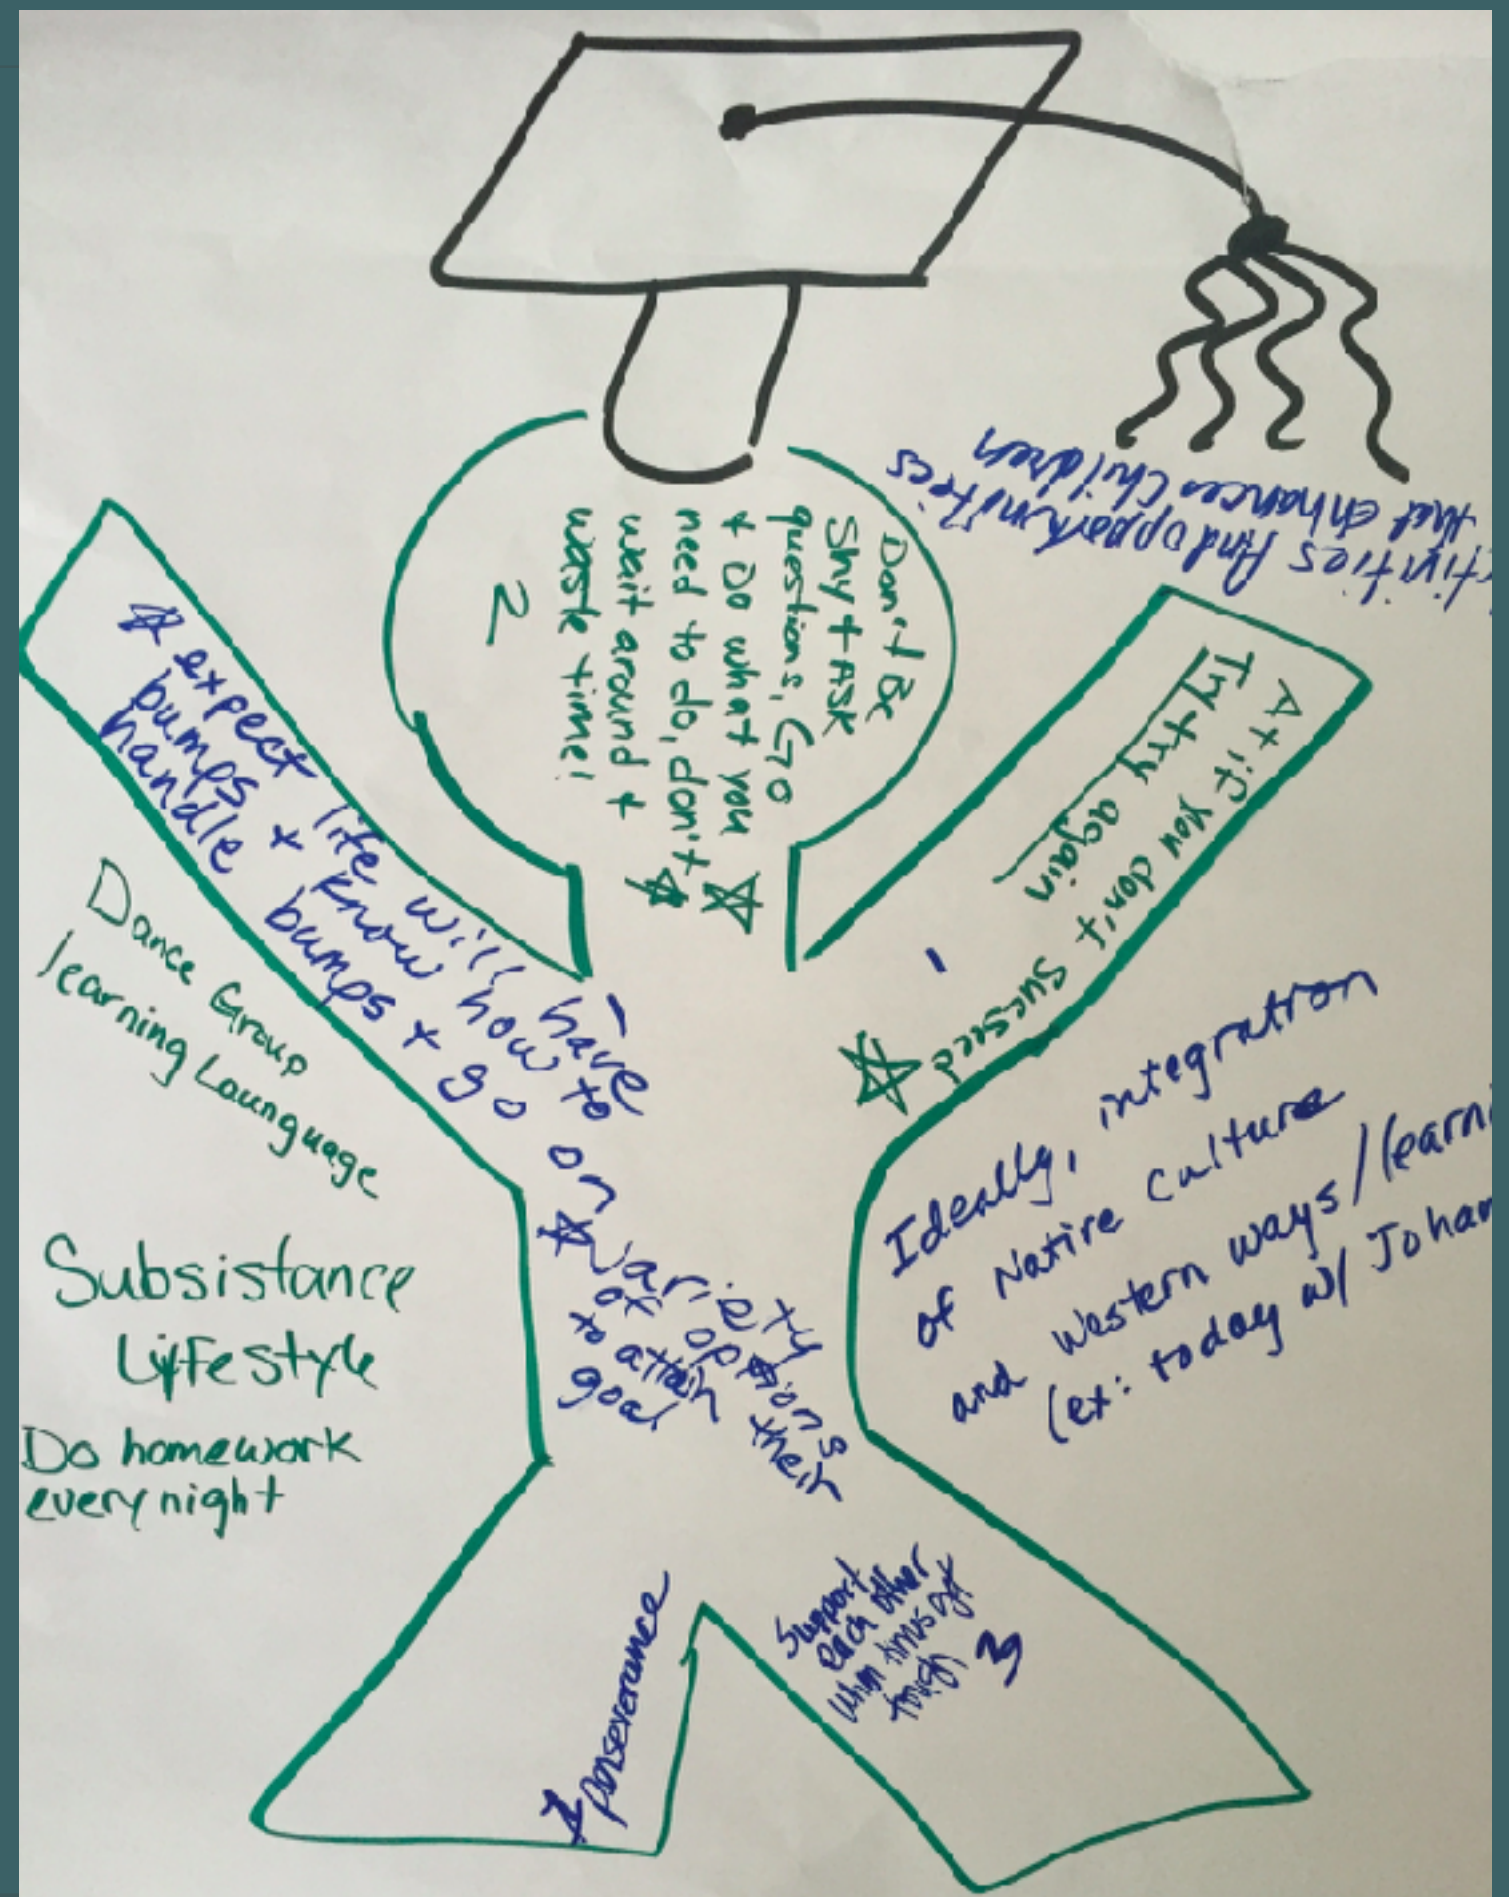 And opportunities
that enhances children
Don't Be
Shy + ASK
questions, Go
+ Do what you
need to do, don't
wait around +
waste time!
2
A + if you don't sucseed
Try try again
expect life will have
bumps + know how to
handle bumps + go on
Dance Group
learning Launguage
Subsistance
Lifestyle
Do homework
every night
Variety
of options
to attain their
goal
Ideally, integration
of Native culture
and Western ways/
(ex: today w/
perseverance
Support
each other
when times get
tough
3